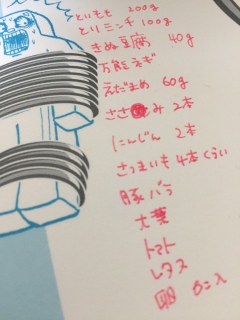 とりもも 200g
とりミンチ 100g
きぬ豆腐 40g
万能ネギ
えだまめ 60g
ささみ 2本
にんじん 2本
さつまいも 4本くらい
豚バラ
大葉
トマト
レタス
卵 6コ入